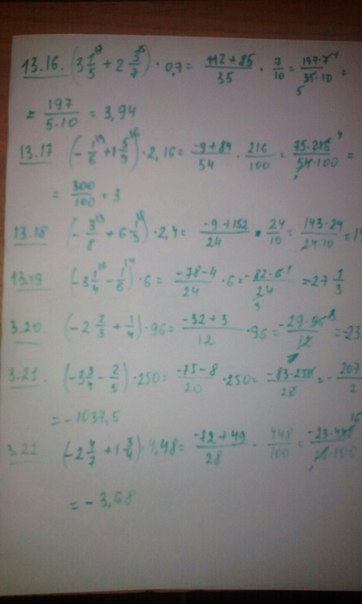 13.16. (3 1/5 + 2 3/7) · 0,7 = 112+85/35 · 7/10 = 197·7/35·10 =
= 197/5·10 = 3,94
13.17 (-1/6 + 1 5/9) · 2,16 = -9+84/54 · 216/100 = 75·216/54·100 =
= 300/100 = 3
13.18 (-3/8 + 6 1/3) · 2,4 = -9+152/24 · 24/10 = 143·24/24·10 = 14
(-3 1/4 - 1/6) · 6 = -78-4/24 · 6 = -82·6/24 = -27 1/3
3.20 (-2 2/3 + 1/4) · 96 = -32+3/12 · 96 = -29·96/12 = -23
3.21. (-3 3/4 - 2/5) · 250 = -75-8/20 · 250 = -83·250/20 = -207
= -1037,5
3.22 (-2 4/7 + 1 3/4) · 4,48 = +49/28 · 448/100 = -23·448/28·100
= -3,68